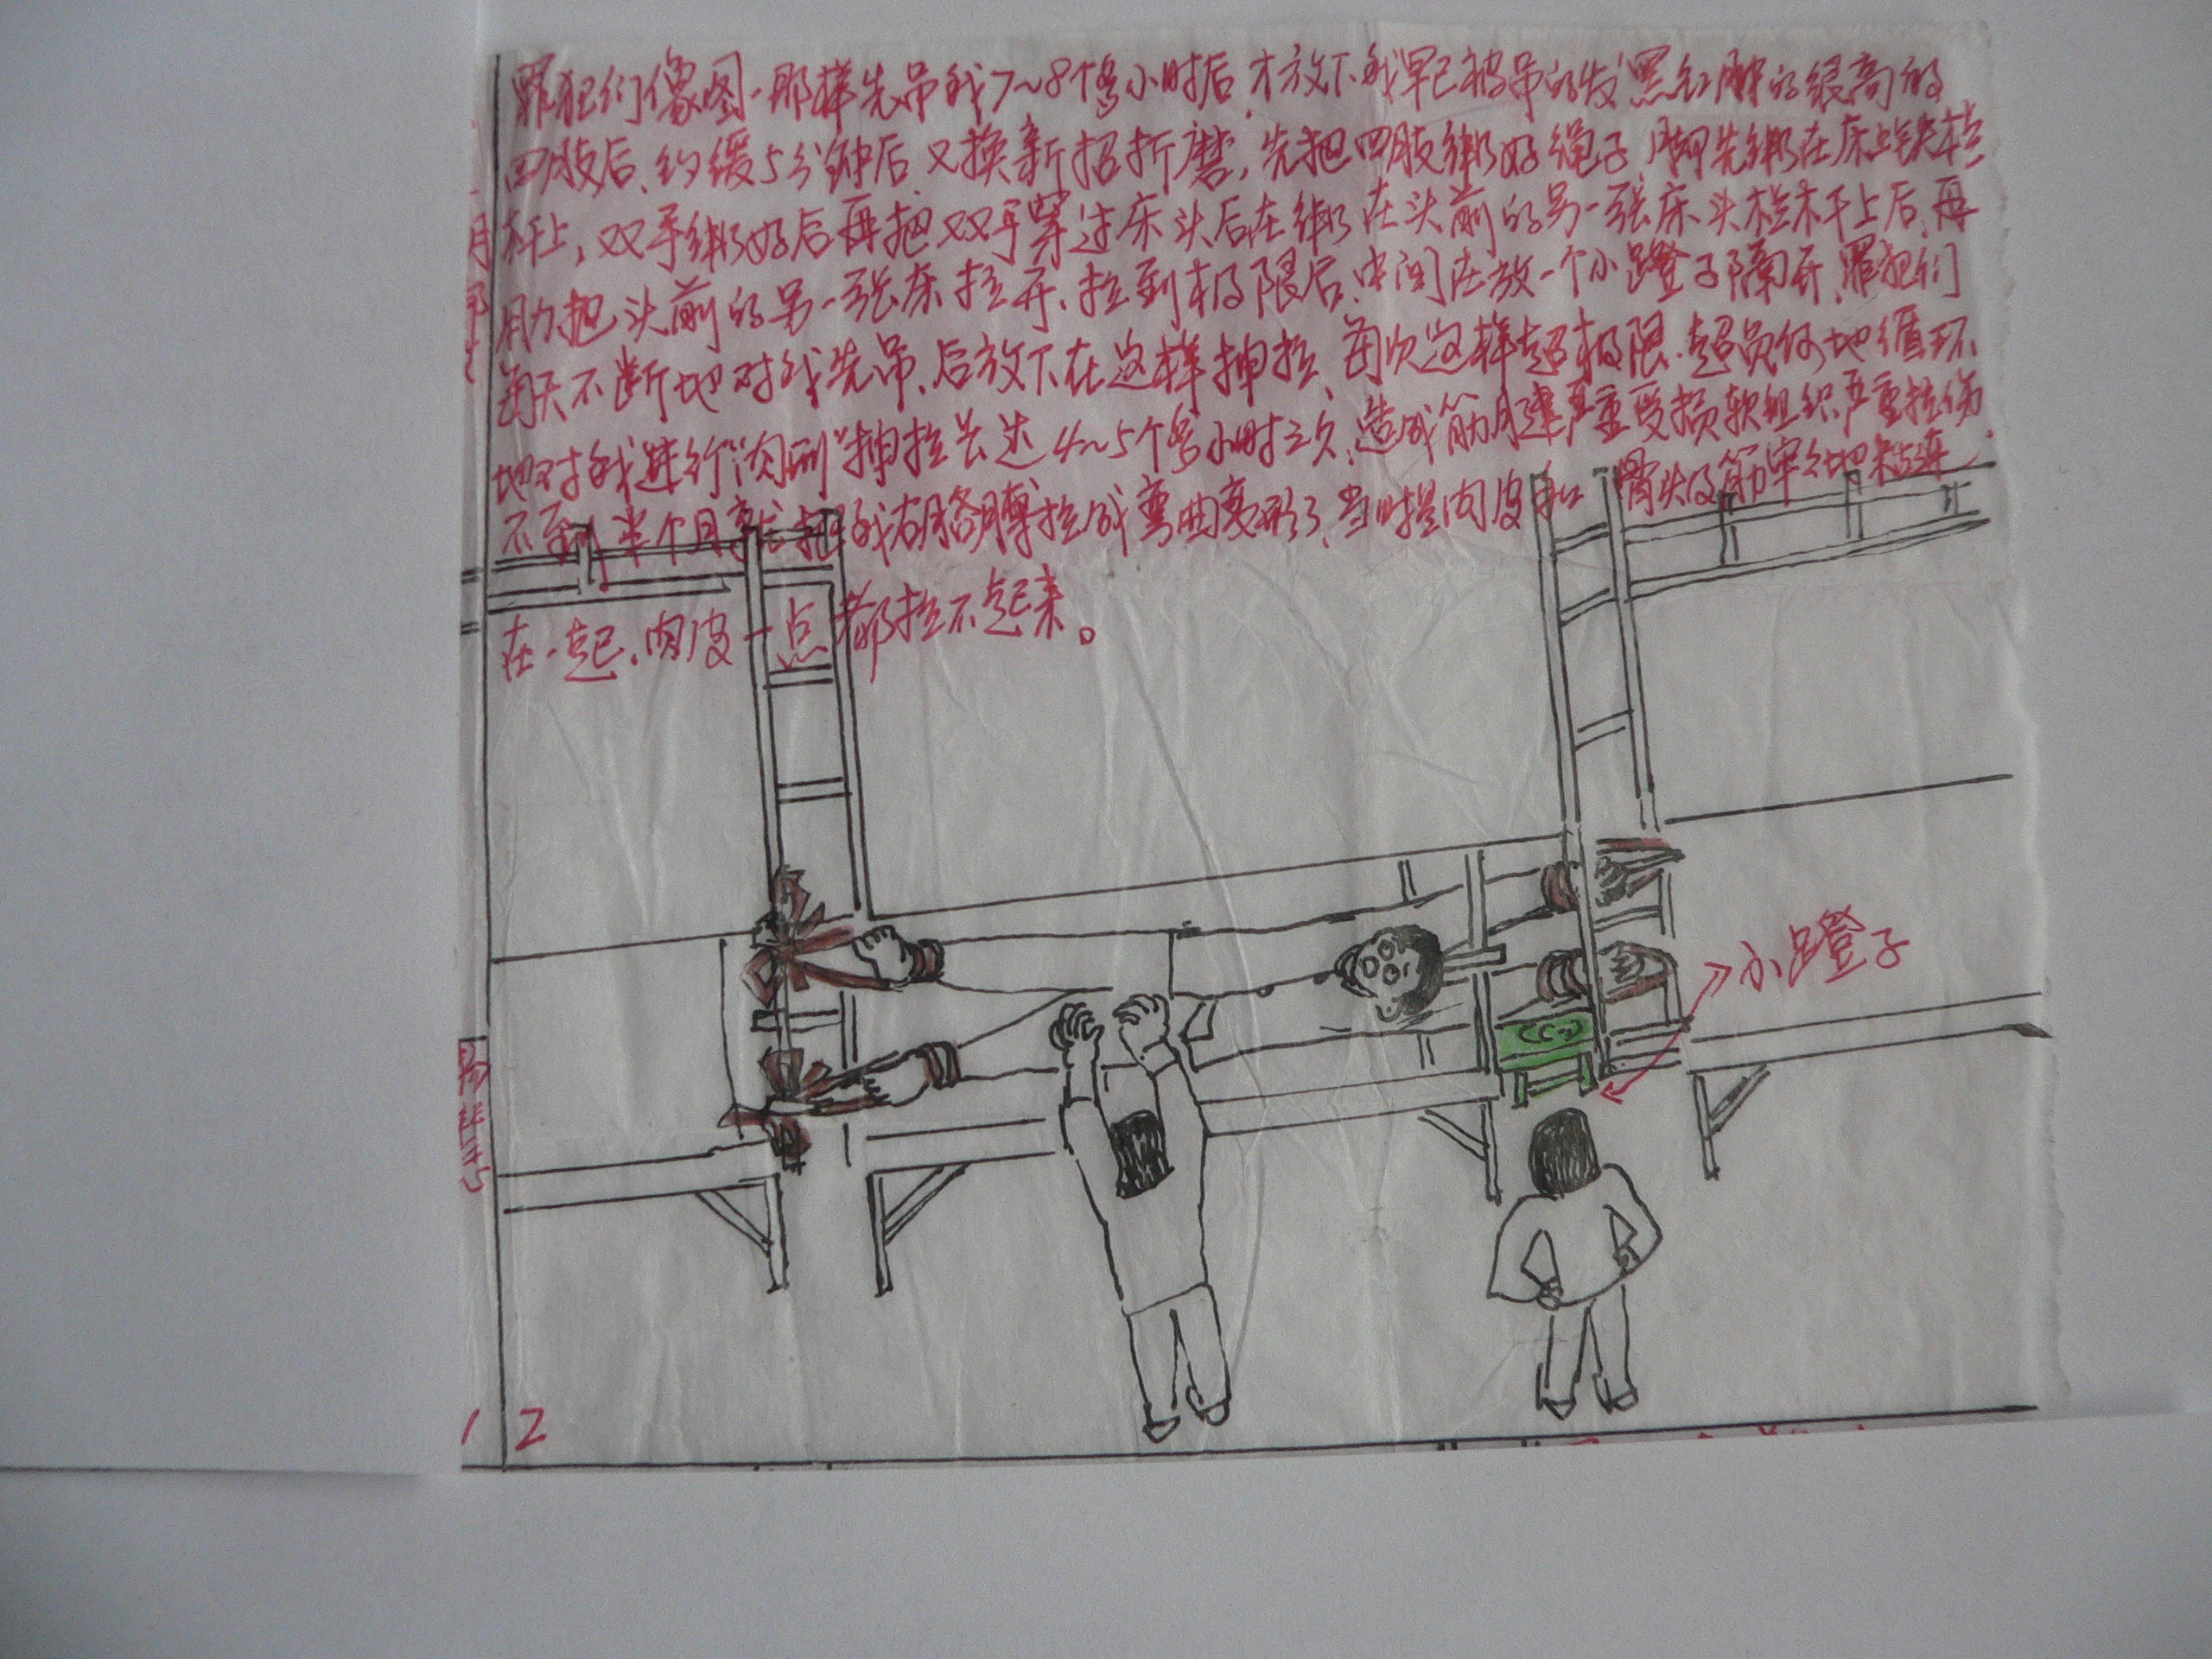 罪犯们像图一那样先吊我7～8个多小时后,才放下我早已被吊的发黑红肿的很高的
四肢后、约缓5分钟后、又换新招折磨,先把四肢绑好绳子,脚先绑在床上铁栏
杆上,双手绑好后再把双手穿过床头后在绑在头前的另一张床头栏杆上后,再
用力把头前的另一张床拉开、拉到极限后、中间在放一个小蹬子隔开、罪犯们
每天不断地对我先吊、后放下在这样抻拉、每次这样超极限、超负何地循环
地对我进行"肉刑"抻拉长达4～5个多小时之久,造成筋腱严重受损软组织严重拉伤.
不到半个月就把我右胳膊拉成弯曲变形了、当时提肉皮和骨头及筋牢牢地粘连
在一起.肉皮一点都拉不起来。
小蹬子
1 2